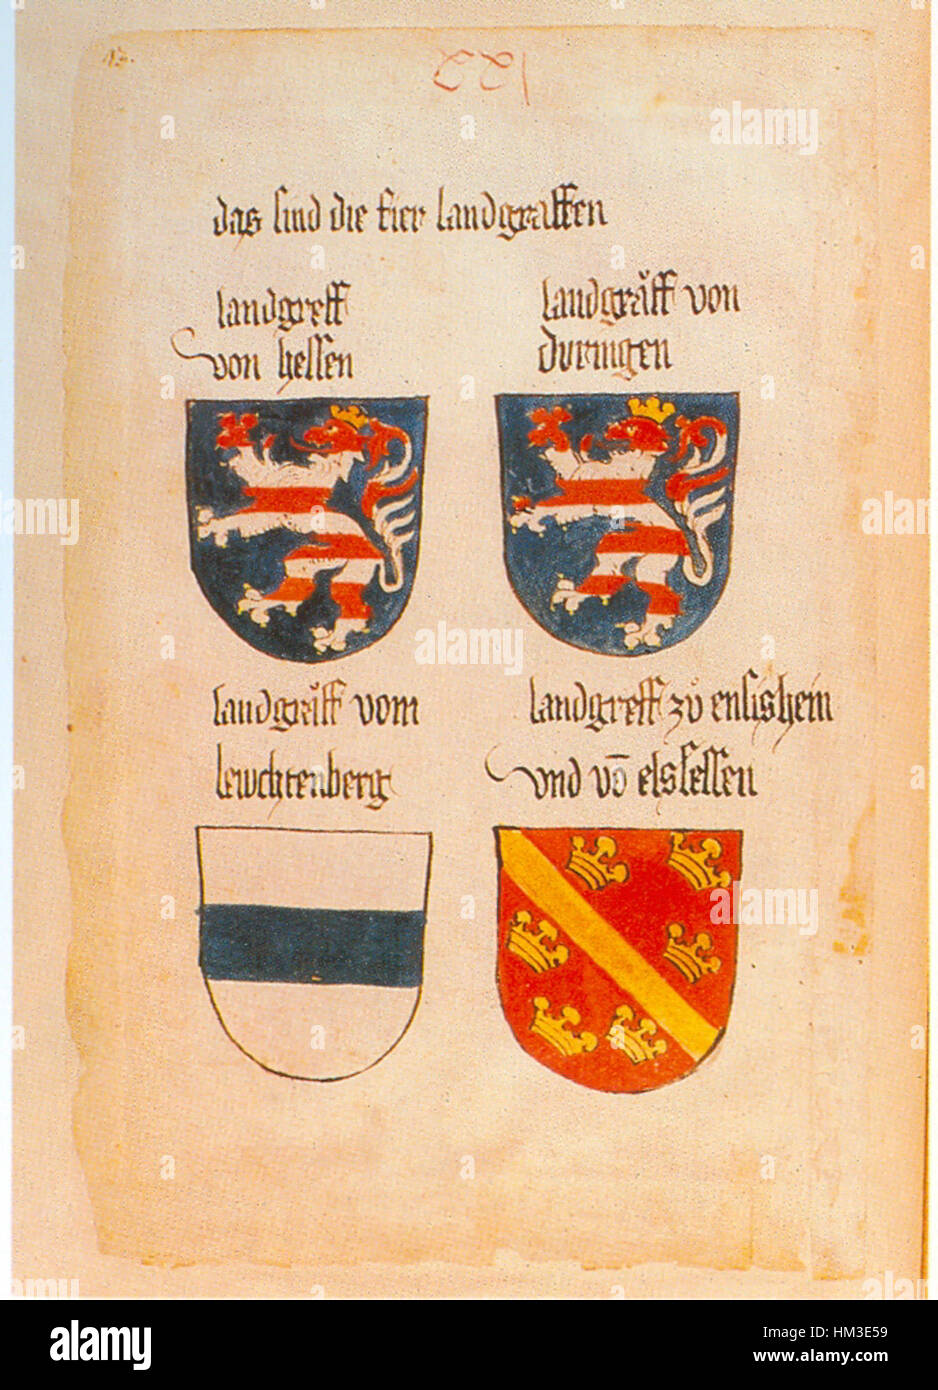 43.
122
das sind die fier landgraffen
landgreff
von hessen
landgräff von
duringen
landgräff vom
lewchtenberg
landgreff zů ensishein
vnd vō elssessen
a alamy stock photo
alamy
Image ID: HM3E59
www.alamy.com